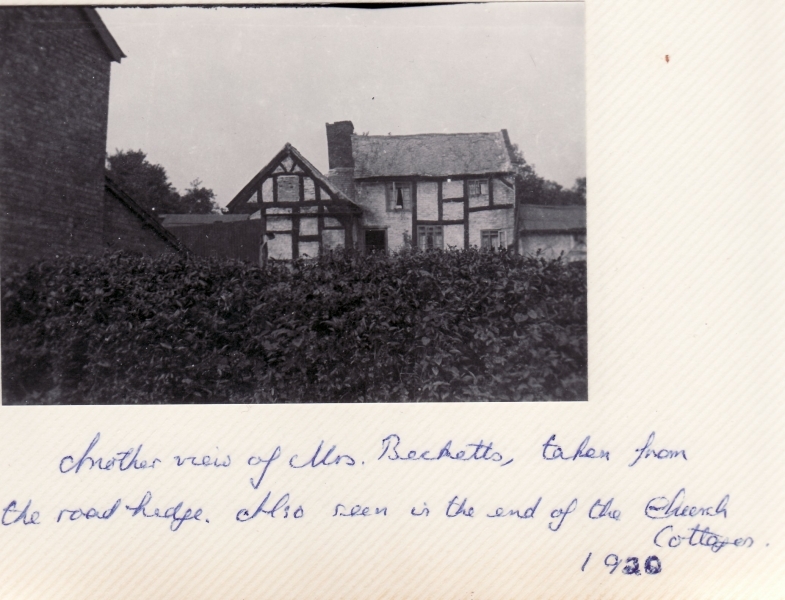 Another view of Mrs. Becketts, taken from
the road hedge. Also seen is the end of the Church
Cottages.
1920